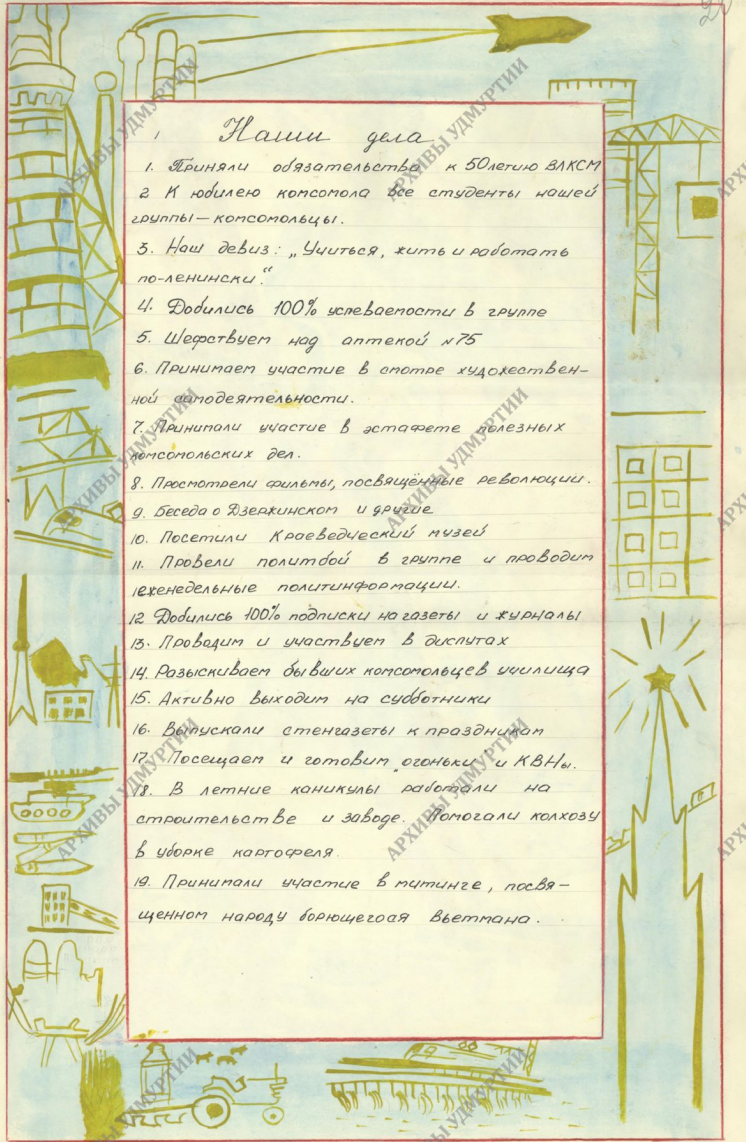 20
Наши дела
1. Приняли обязательства к 50летию ВЛКСМ
2 К юбилею комсомола все студенты нашей
группы – комсомольцы.
3. Наш девиз: „Учиться, жить и работать
по-ленински."
4. Добились 100% успеваемости в группе
5. Шефствуем над аптекой №75
6. Принимаем участие в смотре художествен-
ной самодеятельности.
7. Принимали участие в эстафете полезных
комсомольских дел.
8. Просмотрели фильмы, посвящённые революции.
9. Беседа о Дзержинском и другие
10. Посетили Краеведческий музей
11. Провели политбой в группе и проводим
еженедельные политинформации.
12 Добились 100% подписки на газеты и журналы
13. Проводим и участвуем в диспутах
14. Разыскиваем бывших комсомольцев училища
15. Активно выходим на субботники
16. Выпускали стенгазеты к праздникам
17. Посещаем и готовим „огоньки" и КВНы.
18. В летние каникулы работали на
строительстве и заводе. Помогали колхозу
в уборке картофеля.
19. Принимали участие в митинге, посвя-
щенном народу борющегося Вьетмана.
АРХИВЫ УДМУРТИИ